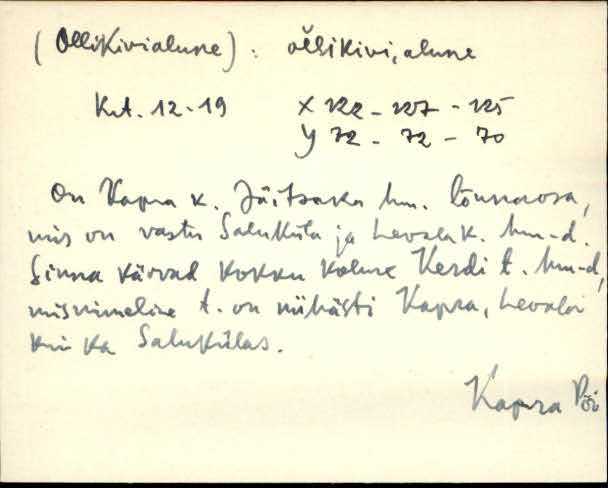 (Ollikivialune): õllikivi,alune
Krt. 12-19 X 122 - 127 - 125
Y 72 - 72 - 70
On Kapra k. Jäitsaka hm. lõunaosa,
mis on vastu Saluküla ja Levala k. hm-d.
Sinna käivad kokku kolme Kerdi t. hm-d,
misnimeline t. on niihästi Kapra, Levala
kui ka Salukülas.
Kapra Põi